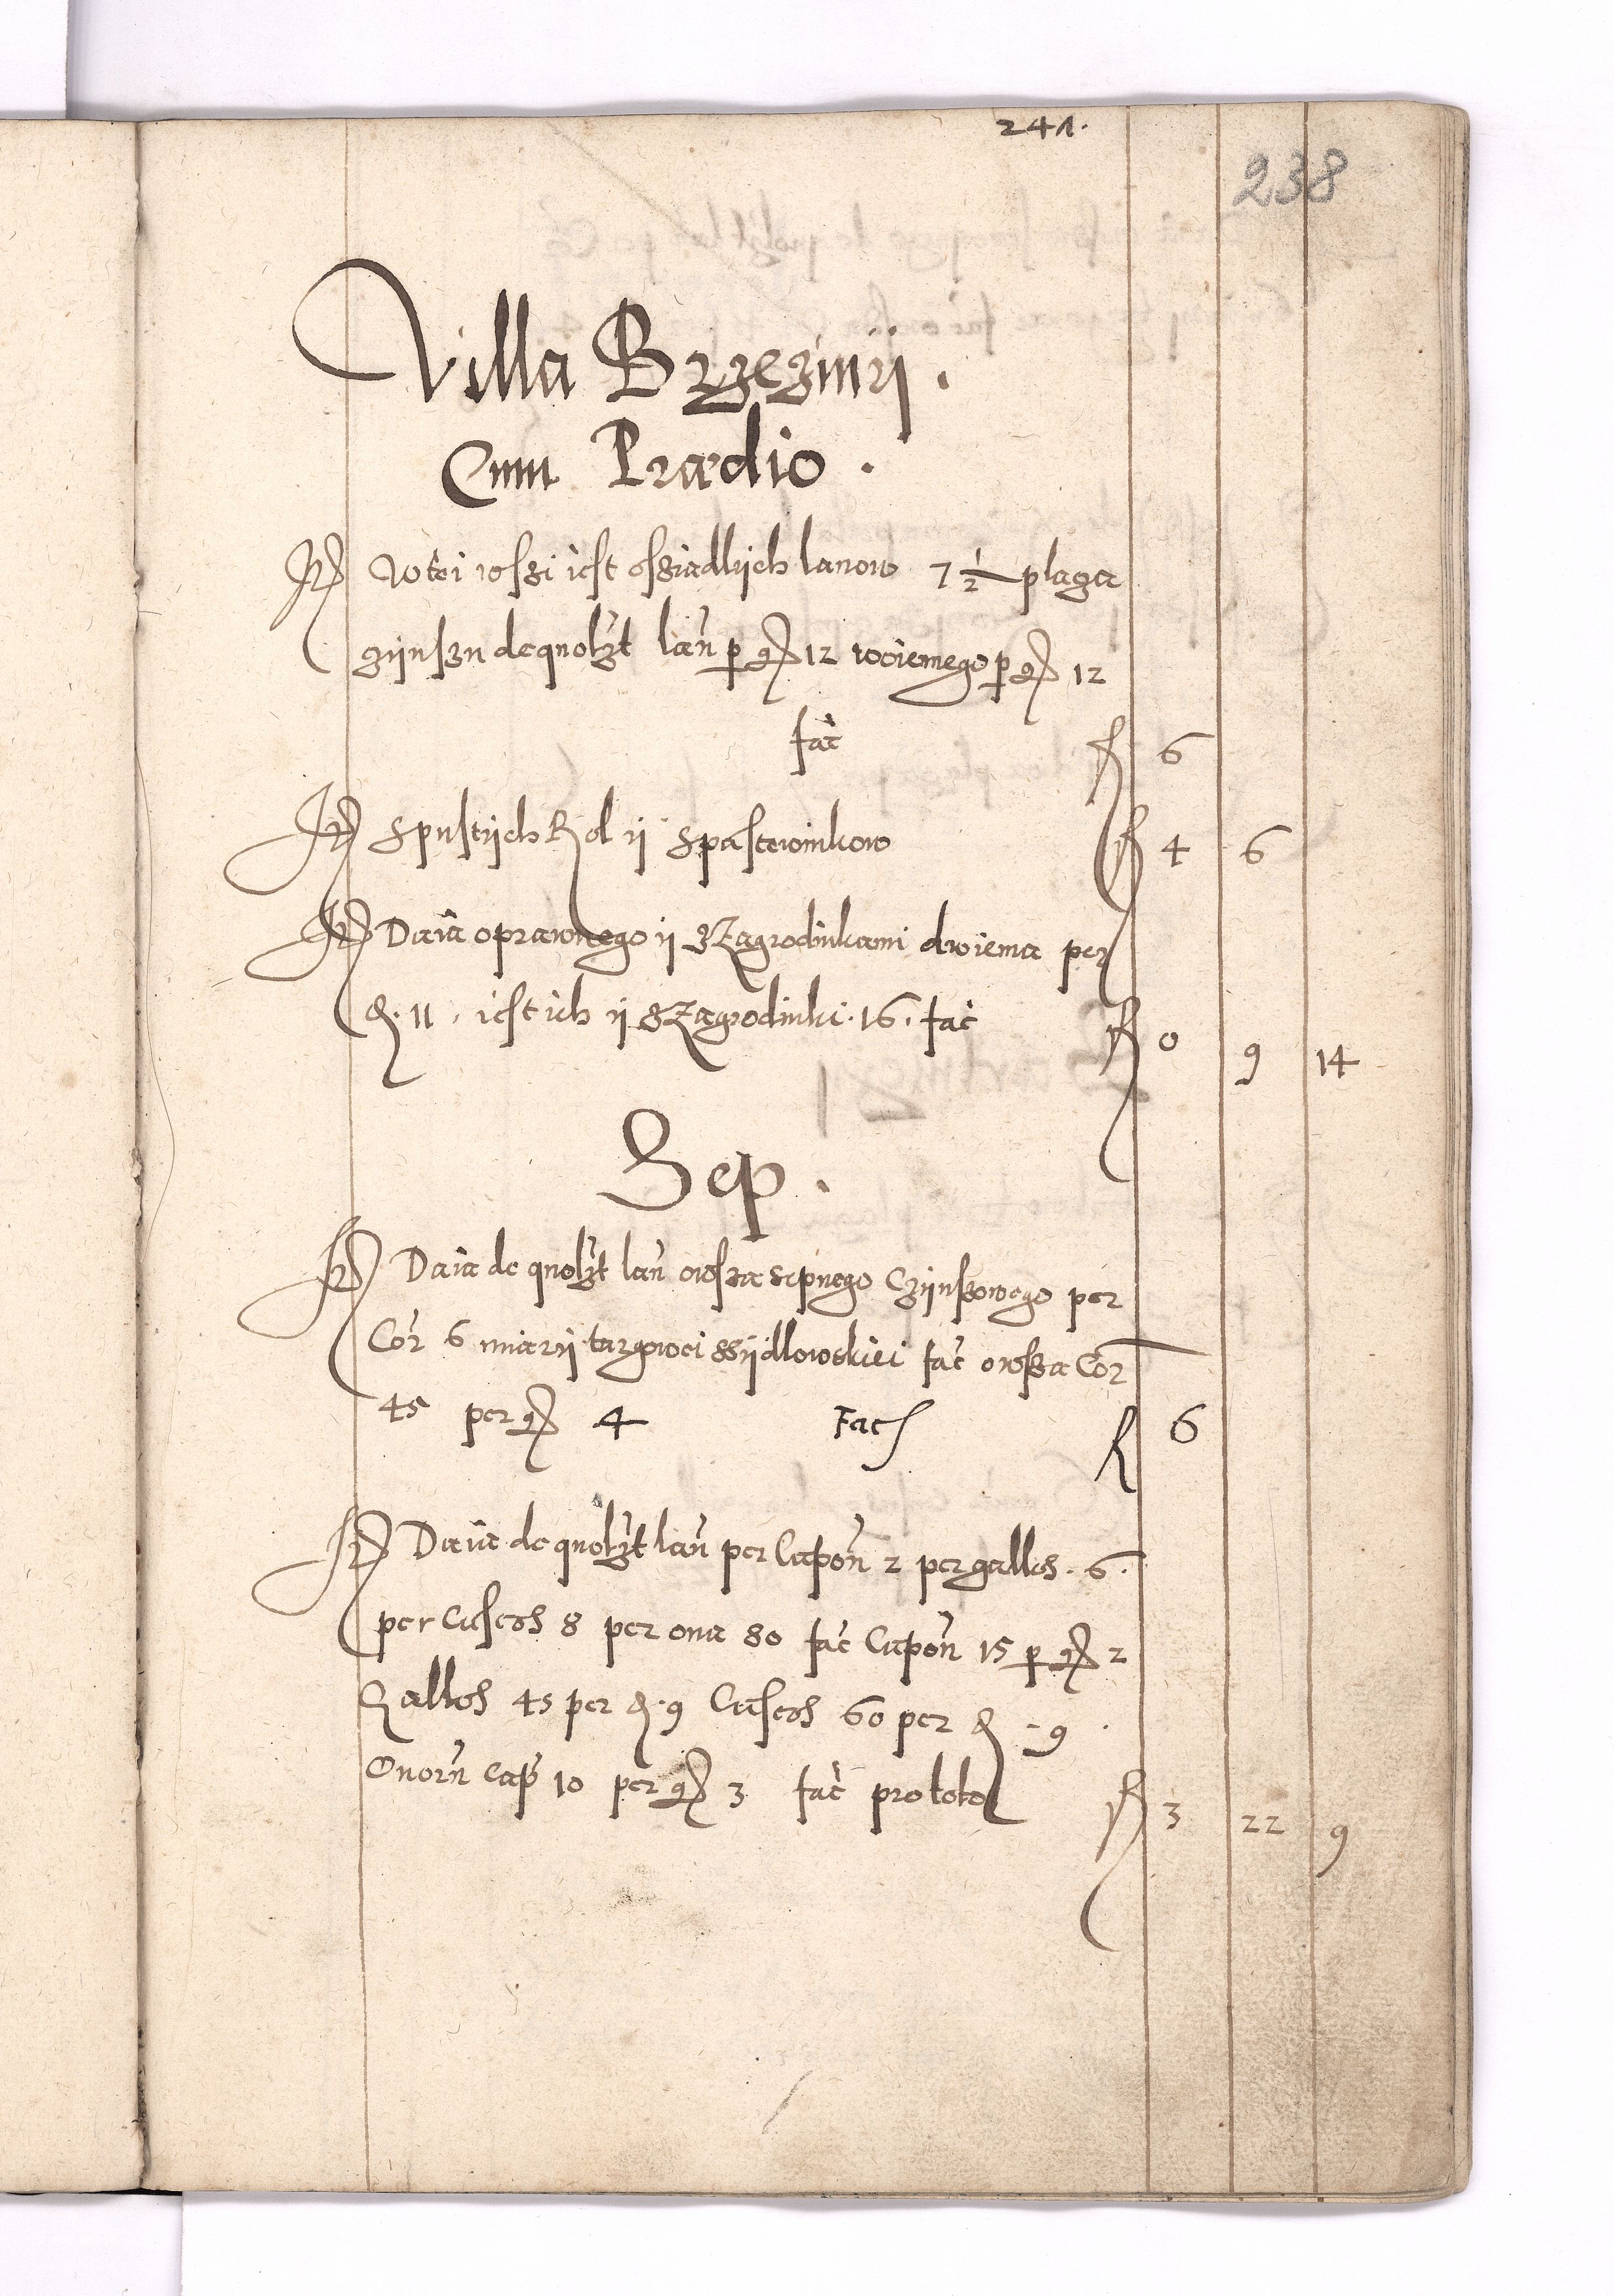 241.
238
Villa Brzezinij.
Cum Prædio.
Itē w tei wsſi iest osſiadlijch lanow 7 1/2 plaga
czijnszu de quolzt lan̄ p gr 12 wociemego p gr 12
fac̄ fl 6
Itē S pustijch Rol ij s pastewnikow fl 4 6
Itē Daia oprawnego ij z Zagrodnikami dwiema per
d. 11. iest ich ij z Zagrodniki. 16. fac̄ fl 0 9 14
Sep.
Itē Daia de quolzt lan̄ owsza sepnego Czijnszowego per
Cor̄ 6 miarij targowei Szijdlowskiei fac̄ owsza Cor̄
45 per gr 4 Fac fl 6
Itē Daia de quolzt lan̄ per Capon̄ 2 per gallos. 6.
per Caseos 8 per oua 80 fac̄ Capon̄ 15 p gr 2
Gallos 45 per d. 9 Caseos 60 per d. 9.
Ouorū cap 10 per gr 3 fac̄ pro toto fl 3 22 9